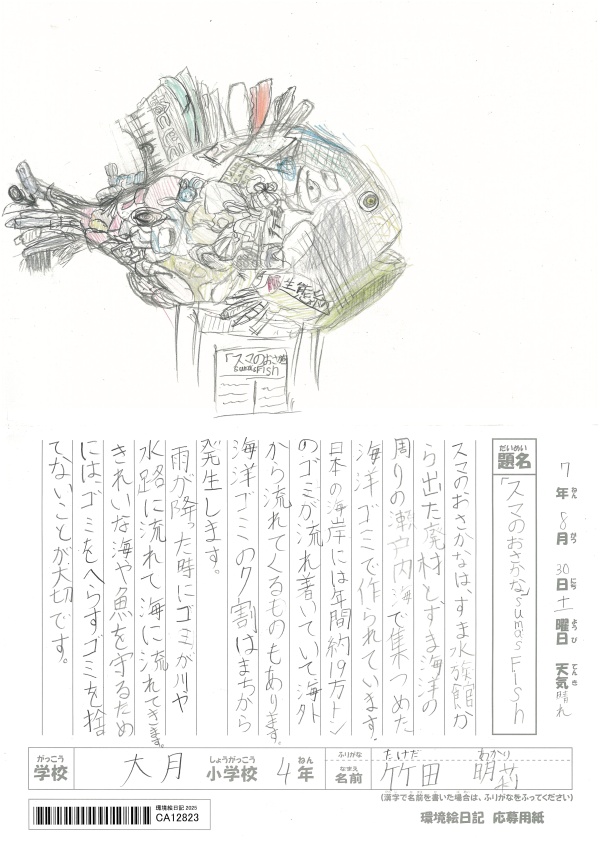 生態系
「スマのおさかな
Suma's Fish
7年 8月 30日 土曜日 天気 晴れ
ねん がつ にち ようび てんき
だいめい
題名
「スマのおさかな」suma's Fish
スマのおさかなは、すま水族館か
ら出た廃材とすま海洋の
周りの瀬戸内海で集つめた
海洋ゴミで作られています。
日本の海岸には年間約19万トン
のゴミが流れ着いていて海外
から流れてくるものもあります。
海洋ゴミの7割はまちから
発生します。
雨が降った時にゴミが川や
水路に流れて海に流れてきます。
きれいな海や魚を守るため
には、ゴミをへらすゴミを捨
てないことが大切です。
がっこう しょうがっこう ねん
学校 大月 小学校 4年
ふりがな たけだ あかり
なまえ
名前 竹田 明莉
(漢字で名前を書いた場合は、ふりがなをふってください)
環境絵日記 2025
CA12823
環境絵日記 応募用紙